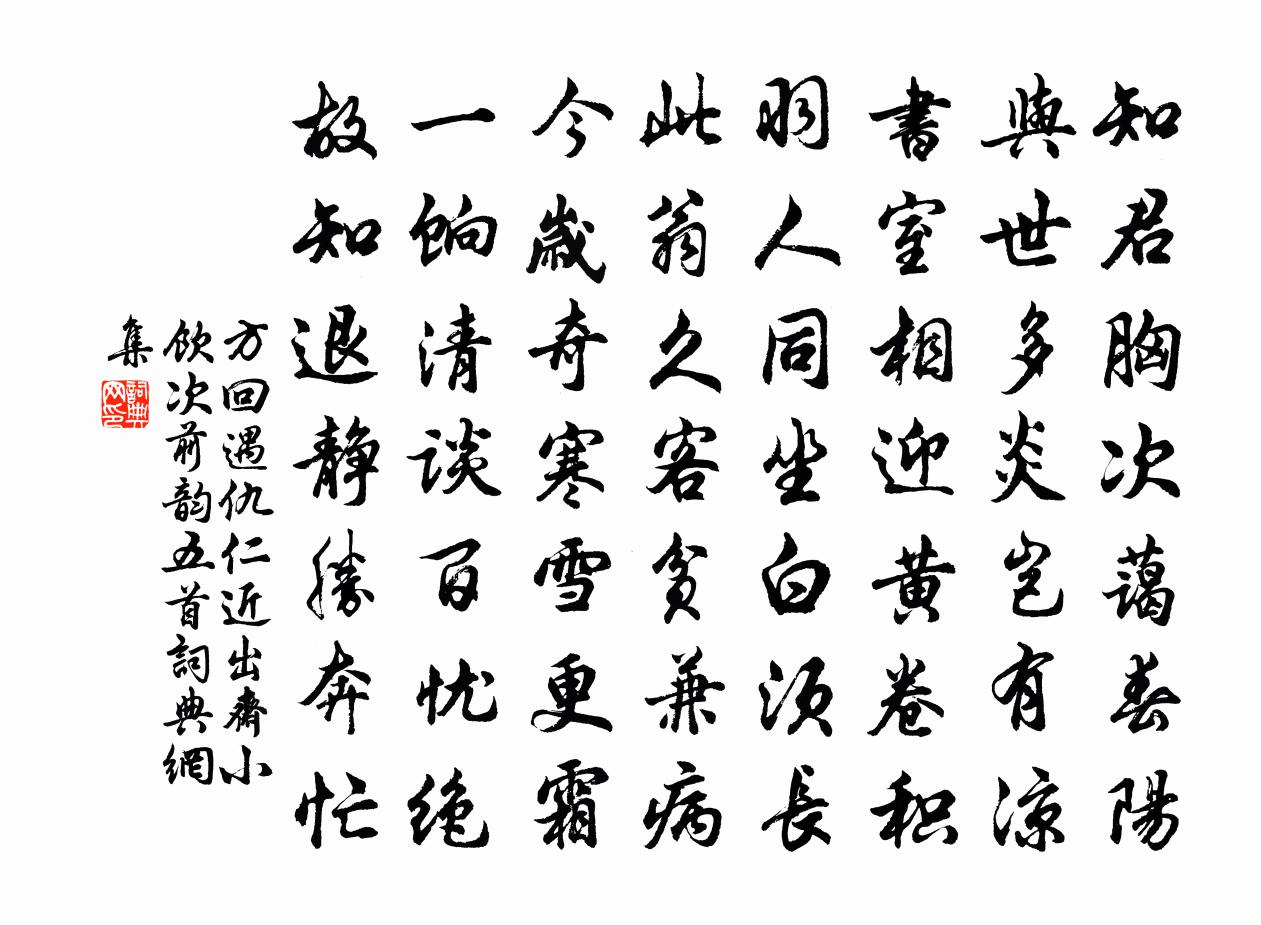 知君胸次藹春陽
與世多炎岂有凉
書室相迎黄卷积
羽人同坐白须長
此翁久客贫兼病
今歲奇寒雪更霜
一饷清谈百忧绝
故知退静勝奔忙
方回遇仇仁近出齋小
飲次前韵五首詞典網
集
詞典网印